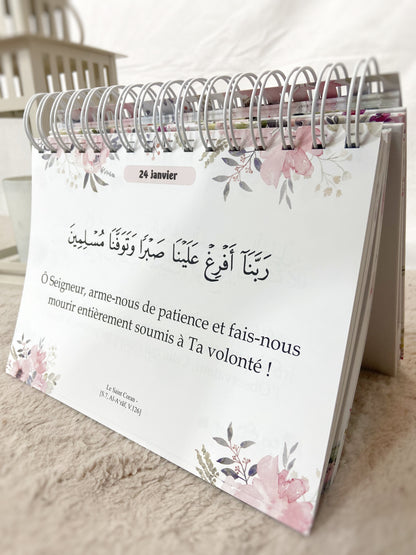 24 janvier
رَبَّنَآ أَفْرِغْ عَلَيْنَا صَبْرًا وَتَوَفَّنَا مُسْلِمِينَ
Ô Seigneur, arme-nous de patience et fais-nous
mourir entièrement soumis à Ta volonté !
Le Saint Coran -
[S.7, Al-A'râf, V.126]